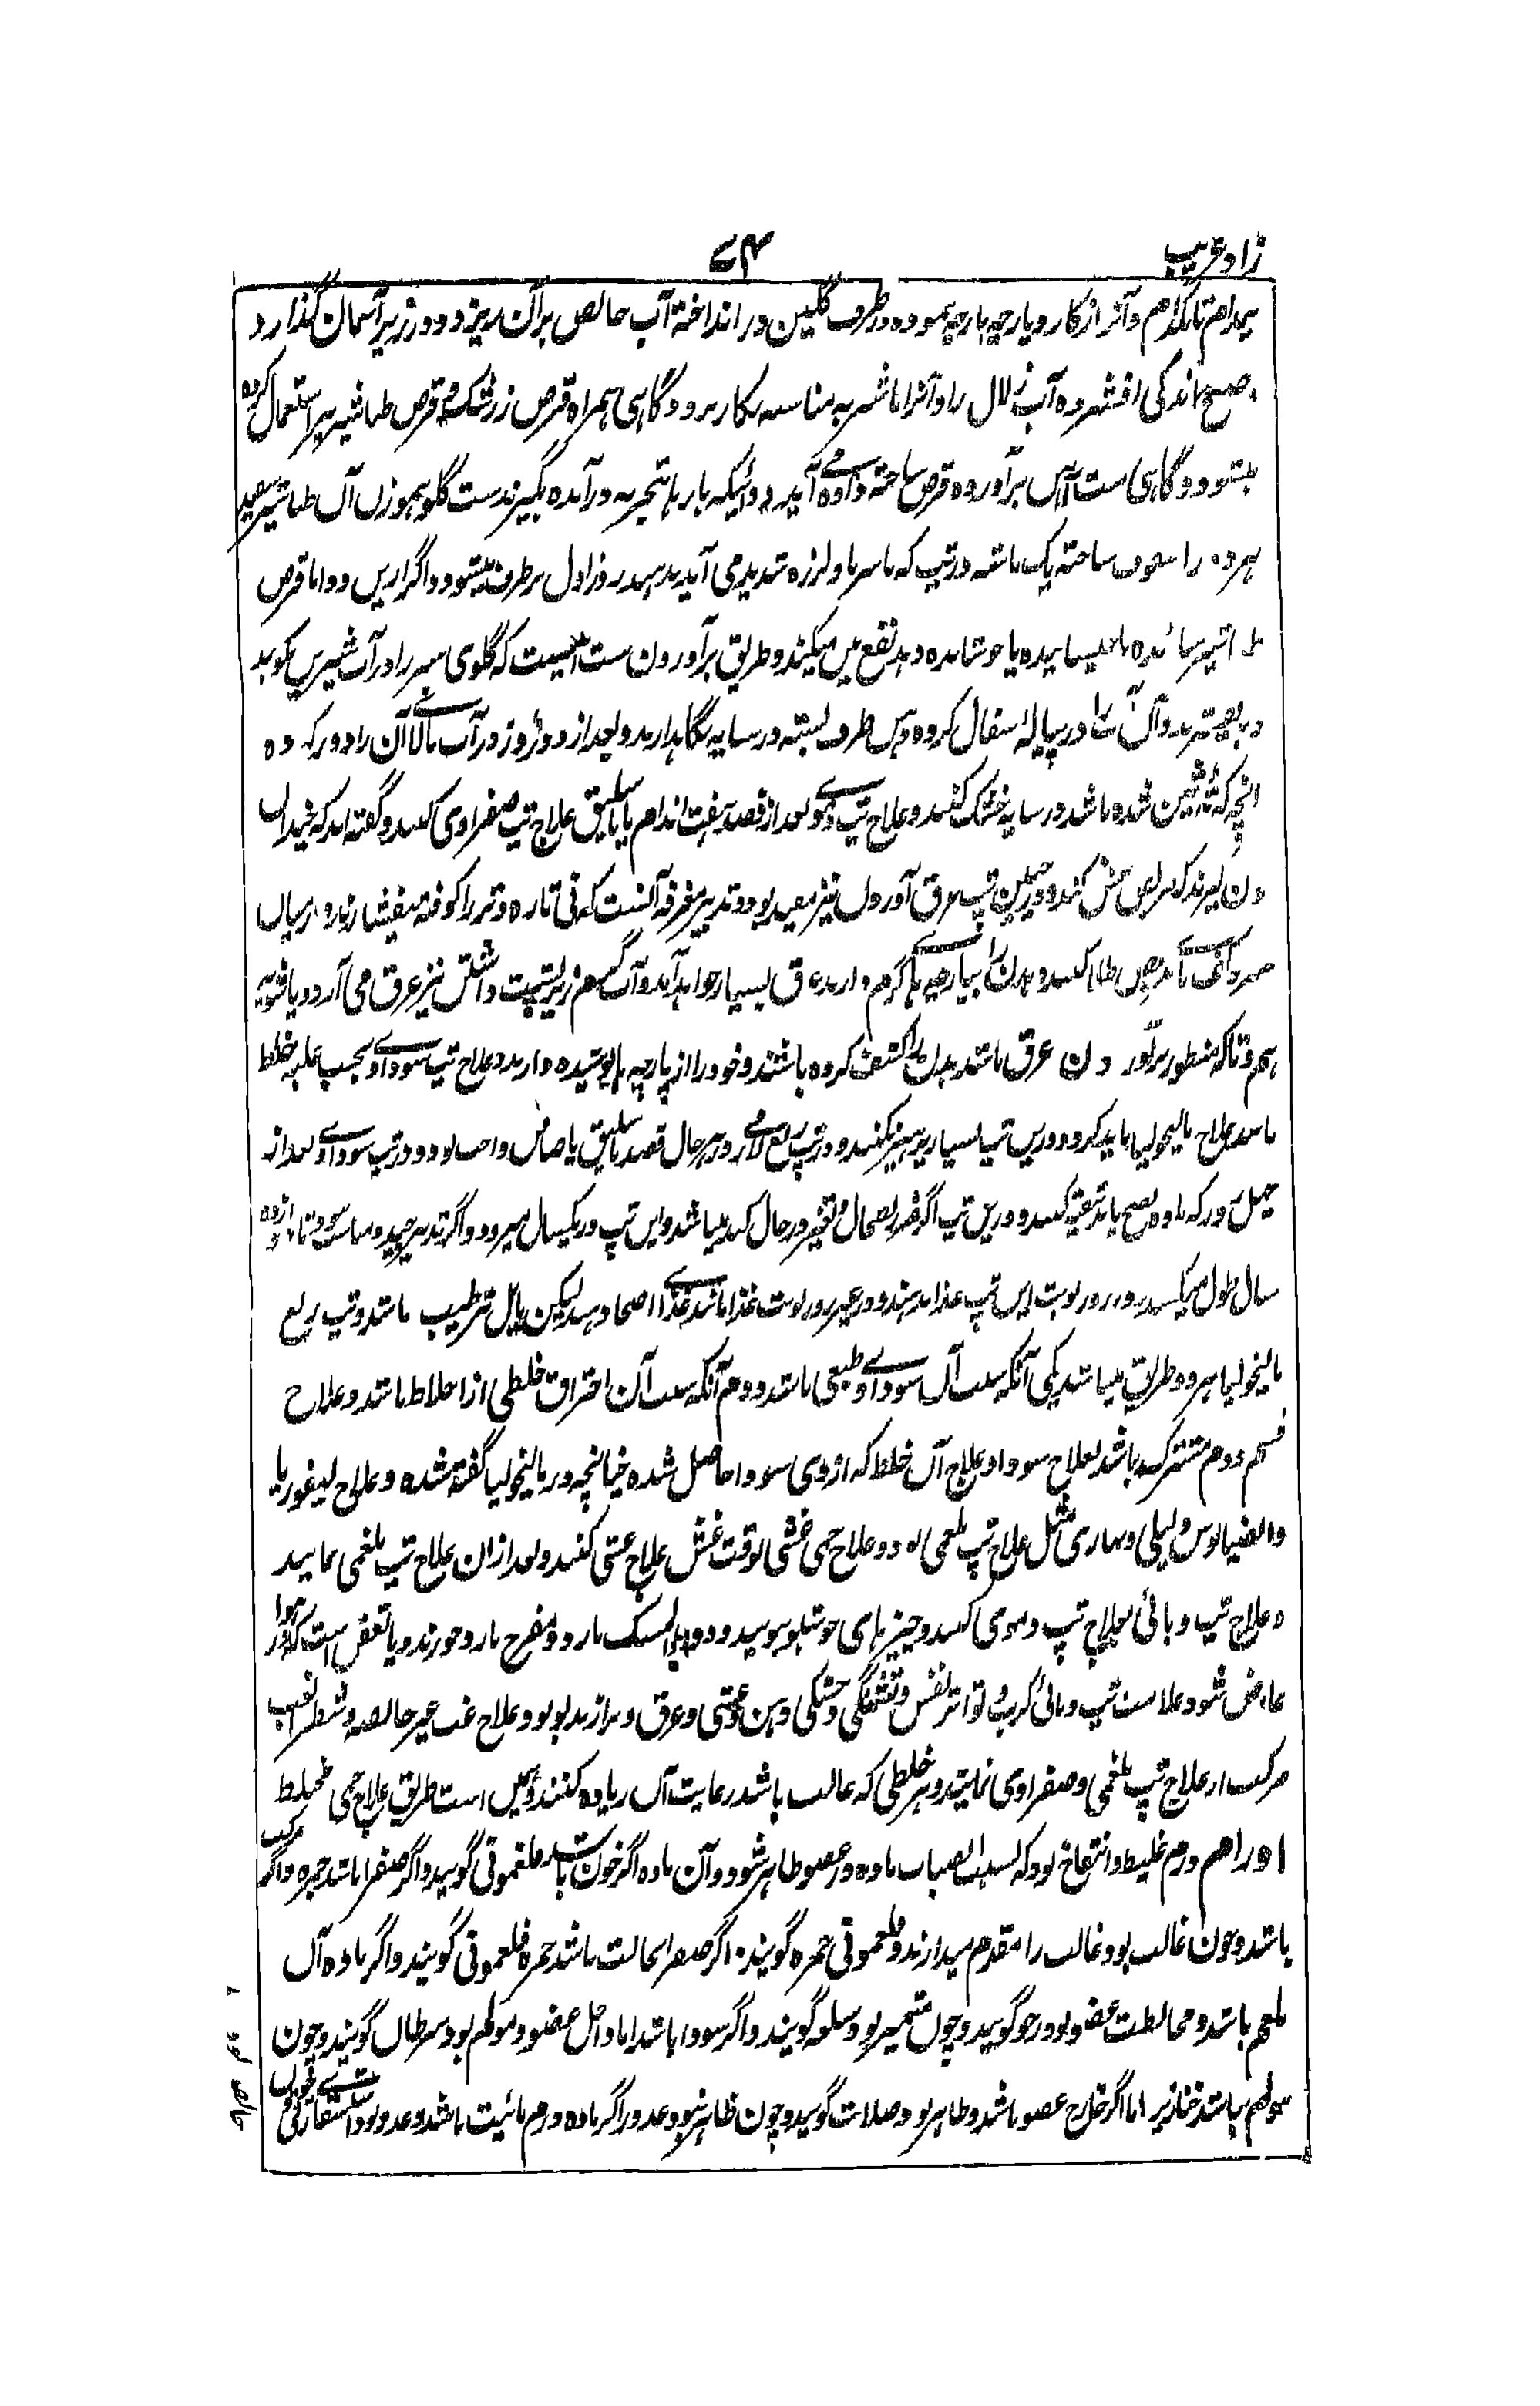 زاد غریب
۷۴
نیمدام تا یکدام و آنرا از کارد پارچه پارچه نموده در ظرف گلین در انداخته آب خالص بر آن ریزد و دو روز زیر آسمان گذارد
صبح اندکی افشرده آب زلال را و آنرا با شربه مناسبه بکار برد و گاهی همراه قرص زرشک و قرص طباشیر نیز استعمال کرده
میشود و گاهی ست آنس برآورده قرص ساخته داده می آید دوائیکه بارها بتجربه درآمده بگیرند ست گلو هموزن آن طباشیر سفید
هردو را سفوف ساخته یک ماشه در تپ که با سرما و لرزه شدید می آید بدهند روز اول برطرف میشود و اگر این دوا با قرص
طباشیر سائیده یا خیسانیده یا جوشانده دهد نفع بین میکند و طریق برآوردن ست اینست که گلوی سبز را در آب شیرین بکوبند
و آن را در پیاله سفال کرده دهن ظرف بسته در سایه نگاهدارند و بعد از دو روز آب بالای آن را دور کرده
آنچه که ته نشین شده باشد در سایه خشک کنند و علاج تپ دموی بعد از فصد هفت اندام یا باسلیق علاج تپ صفراوی کنند و گفته اند که چندان
خون گیرند که مریض غش کند و در همین تپ عرق آوردن نیز مفید بود و تدبیر معرقه آنست که نی تازه و تر را کوفته بیفشارند و از میان
عرق بسیار خواهد آمد و آب گرم زیر پشت داشتن نیز عرق می آرد و پاشویه
هم و تا که منظور برآوردن عرق باشد بدن را کشف کرده باشند و خود را از پارچه ها پوشیده دارند و علاج تپ سوداوی بحسب غلبه خلط
باشد علاج مالیخولیا باید کرد و درین تپ بسیار پرهیز کنند و در تپ ربع لازمی در هر حال فصد باسلیق یا صافن واجب بود و در تپ سوداوی بعد از
چهل روز که ماده نضج یابد تنقیه کنند و درین تپ اگر ضرر بطحال و تغیر در حال کبد میباشد و این تپ در یکسال میرود و اگر تدبیر جید و مناسب شود تا دوازده
سال طول میکشد و در روز نوبت این تپ غذا ندهند و در غیر روز نوبت غذا مانند غذای اصحا دهند لیکن مایل بترطیب باشد و تپ ربع
مالیخولیا بر دو طریق میباشد یکی آنکه سبب آن سودای طبعی باشد و دوم آنکه سبب آن احتراق خلطی از اخلاط باشد و علاج
قسم دوم مشترک باشد بعلاج سودا و علاج آن خلط که از وی سودا حاصل شده چنانچه در مالیخولیا گفته شده و علاج لیفوریا
و انفیالوس و لیلی و نهاری مثل علاج تپ بلغمی بود و علاج حمی غشی بوقت غش علاج غشی کنند و بعد از ان علاج تپ بلغمی نمایند
و علاج تپ وبائی بعلاج تپ دموی کنند و چیزهای خوشبو بویند و دواء المسک بارد و مفرح بارد خورند و یا تعفن است که در هوا
عارض شود و علامت تپ وبائی کرب و تواتر نفس و تشنگی و خشکی دهن و غشی و عرق و براز بدبو بود و علاج غب غیر خالصه و شطر الغب
مرکب از علاج تپ بلغمی و صفراوی نمایند و هر خلطی که غالب باشد رعایت آن زیاده کنند و همین است طریق علاج حمی مخلط مرکب
اورام ورم غلیظ و انتفاخ بود که بسبب انصباب ماده در عضو ظاهر شود و آن ماده اگر خون باشد فلغمونی گویند و اگر صفرا باشد حمره و اگر
باشد و خون غالب بود غالب را مقدم میدارند و فلغمونی حمره گویند اگر صفرا غالب باشد حمره فلغمونی گویند و اگر ماده آن
بلغم باشد و مخالطت عضو بود رخو گویند و چون متمیز بود سلعه گویند و اگر سودا باشد اما داخل عضو و مولم بود سرطان گویند و چون
مولم نباشد خنازیر اما اگر خارج عضو باشد و ظاهر بود صلابت گویند و چون ظاهر نبود غدد و اگر ماده ورم مائیت باشد و غدد بود استسقاء زقی